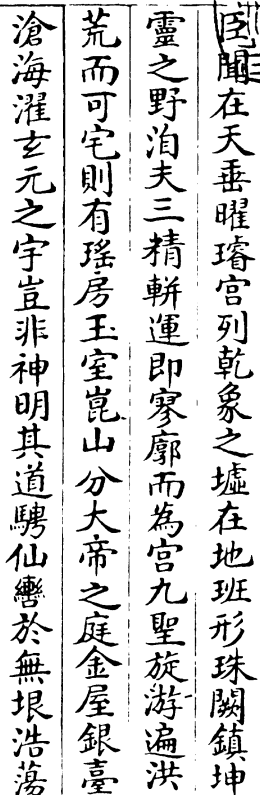 臣聞在天垂曜璿宫列乾象之墟在地班形珠闕鎮坤
靈之野洎夫三精軿運即寥廓而為宫九聖旋游遍洪
荒而可宅則有瑤房玉室崑山分大帝之庭金屋銀臺
滄海濯玄元之宇豈非神明其道騁仙轡於無垠浩蕩